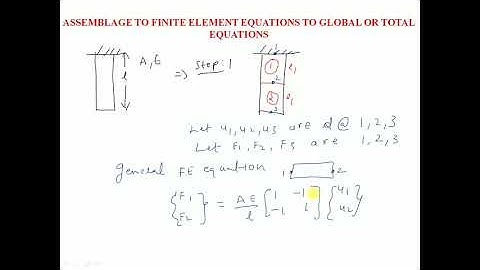 ASSEMBLAGE TO FINITE ELEMENT EQUATIONS TO GLOBAL OR TOTAL
EQUATIONS
l
A, E
⇒ Step: 1
1
① l₁
2
② l₁
3
Let u₁, u₂, u₃ are d @ 1, 2, 3
Let F₁, F₂, F₃ are 1, 2, 3
general FE equation 1 2
{F₁ F₂} = AE/l [1 -1 -1 1] {u₁ u₂}